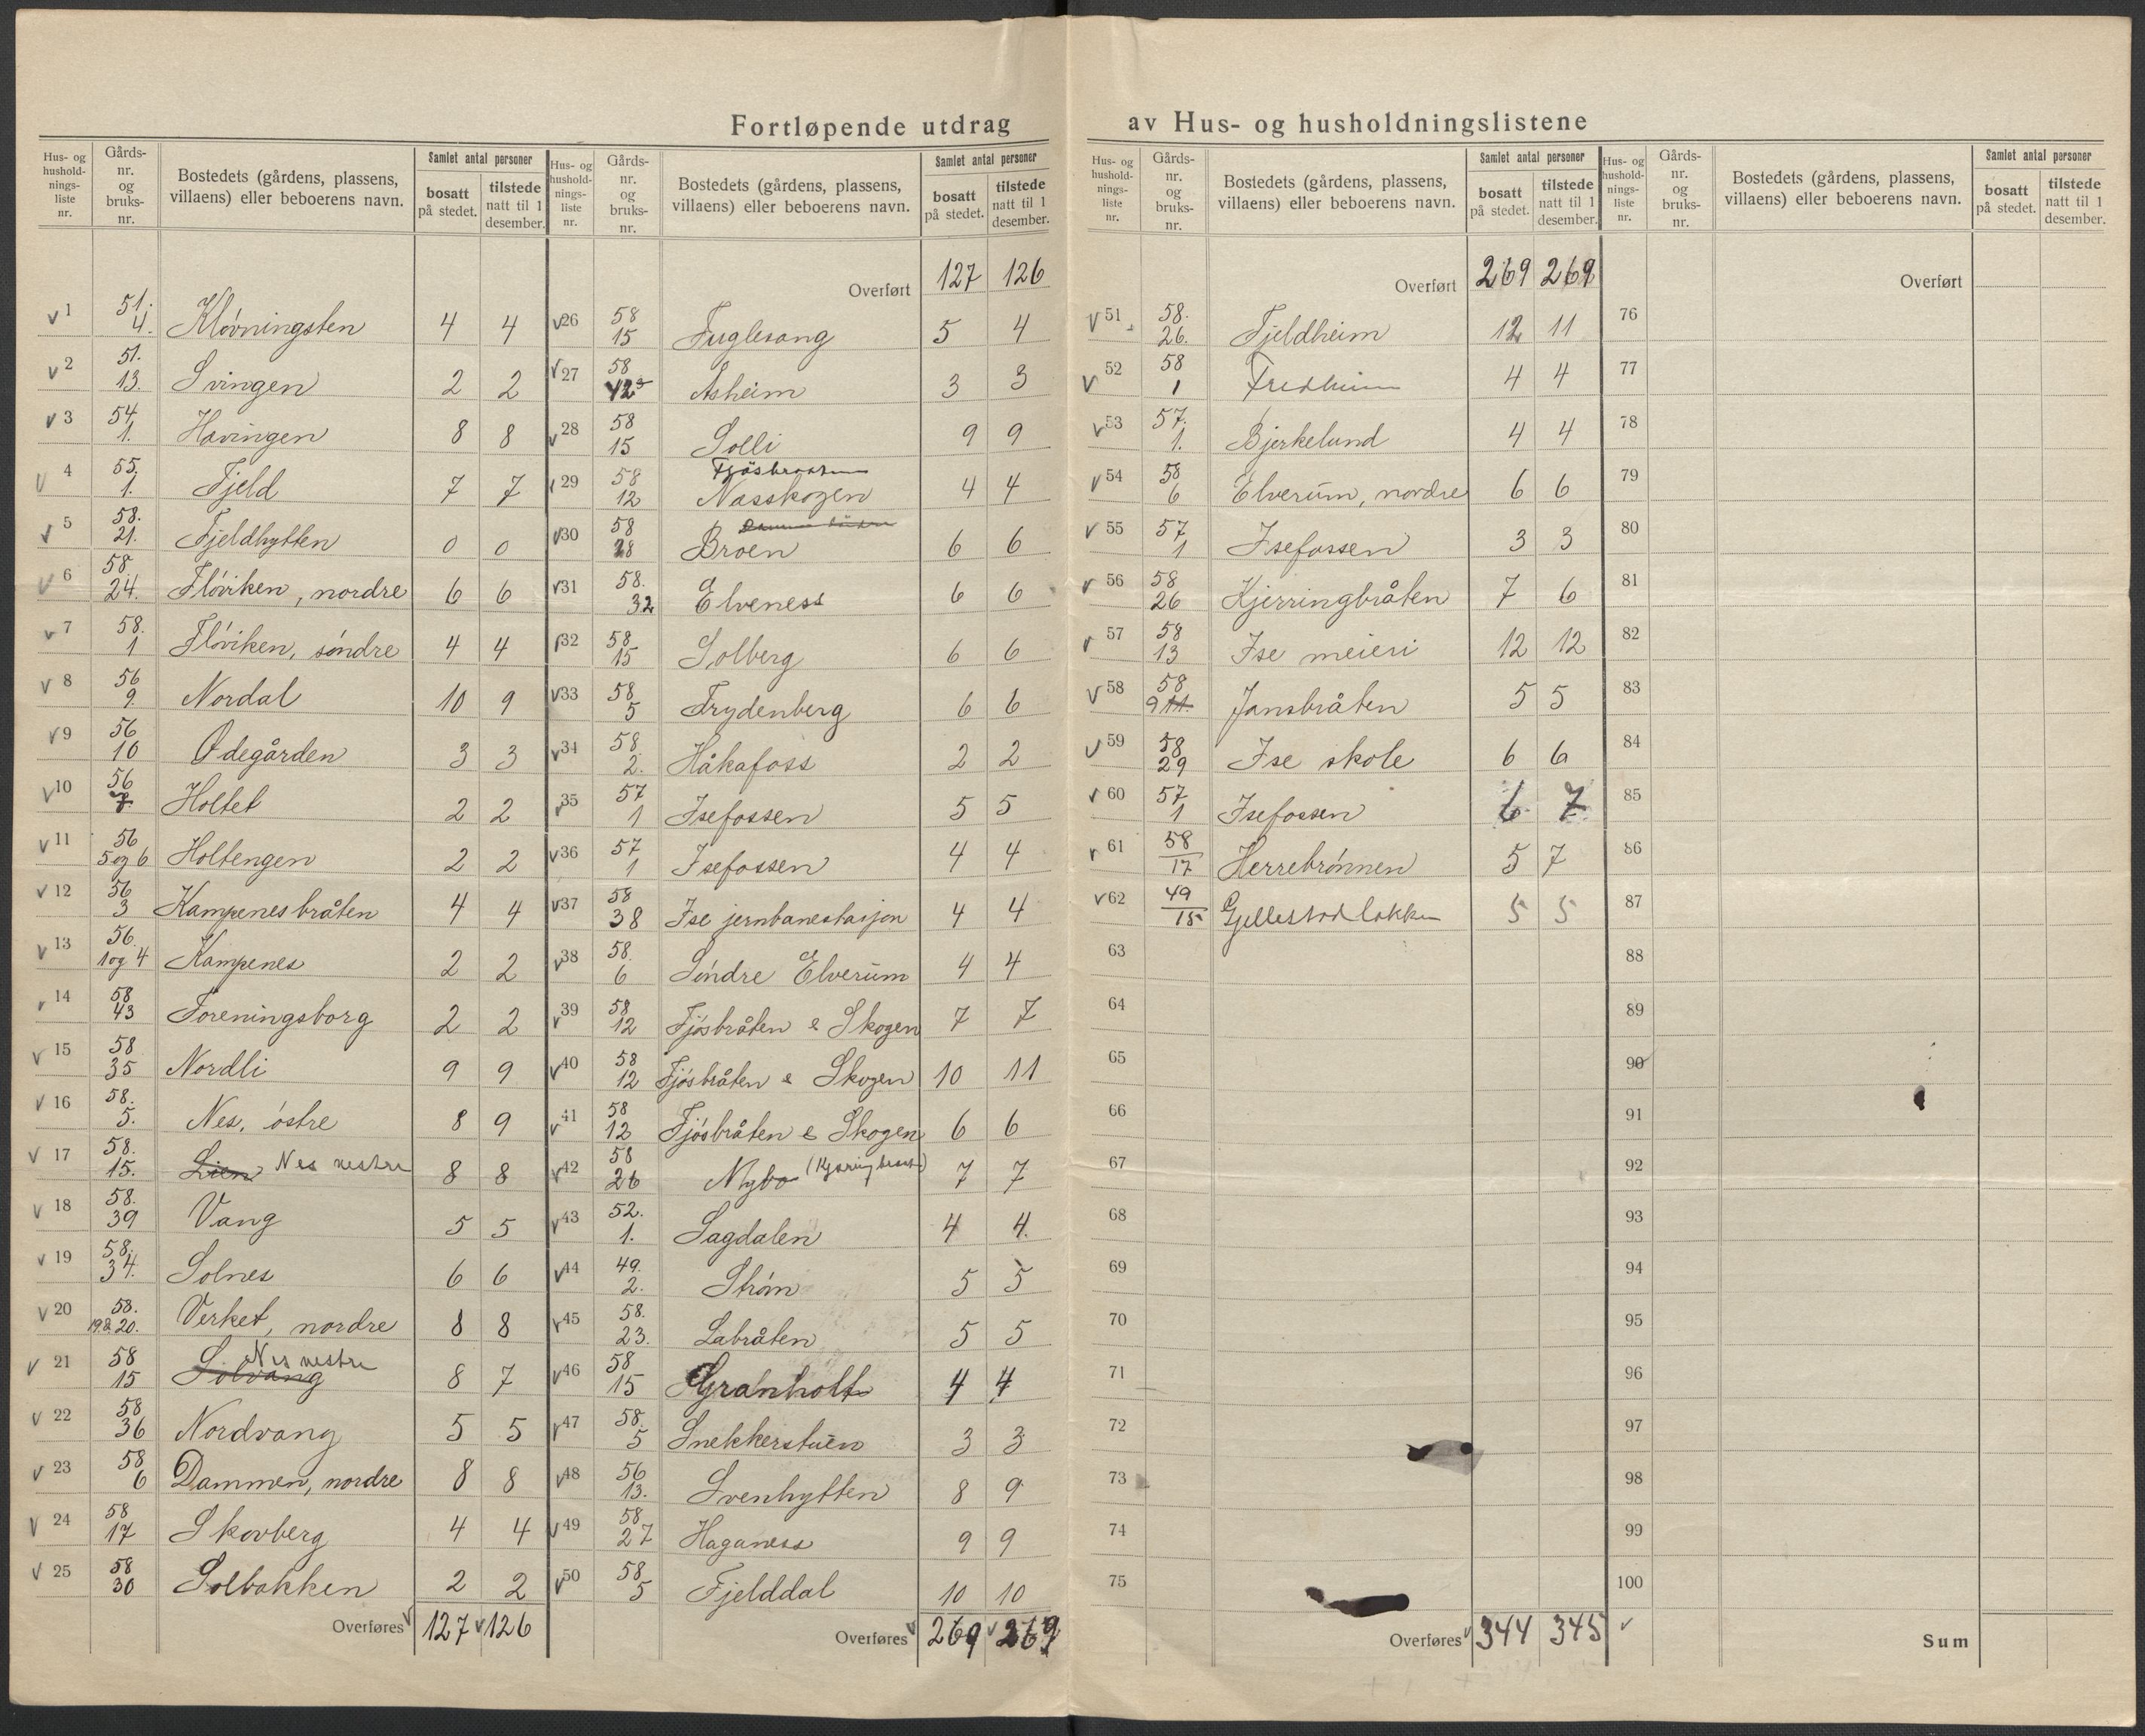 Fortløpende utdrag av Hus- og husholdningslistene
Hus- og husholdningsliste nr. | Gårds-nr. og bruks-nr. | Bostedets (gårdens, plassens, villaens) eller beboerens navn. | Samlet antal personer | bosatt på stedet. | tilstede natt til 1 desember.
1 | 51. 4. | Kløvningsten | 4 | 4
2 | 51. 13. | Svingen | 2 | 2
3 | 54. 1. | Havingen | 8 | 8
4 | 55. 1. | Fjeld | 7 | 7
5 | 58. 21. | Fjeldhytten | 0 | 0
6 | 58. 24. | Fløviken, nordre | 6 | 6
7 | 58. 1 | Fløviken, søndre | 4 | 4
8 | 56 9. | Nordal | 10 | 9
9 | 56 10 | Ødegården | 3 | 3
10 | 56 7. | Holtet | 2 | 2
11 | 56 5 og 6 | Holtengen | 2 | 2
12 | 56 3 | Kampenesbråten | 4 | 4
13 | 56. 1 og 4 | Kampenes | 2 | 2
14 | 58 43 | Foreningsborg | 2 | 2
15 | 58 35 | Nordli | 9 | 9
16 | 58. 5. | Nes, østre | 8 | 9
17 | 58. 15. | Lien Nes vestre | 8 | 8
18 | 58. 39 | Vang | 5 | 5
19 | 58. 34. | Solnes | 6 | 6
20 | 58. 19 & 20. | Verket, nordre | 8 | 8
21 | 58 15 | Solvang Nes vestre | 8 | 7
22 | 58 36 | Nordvang | 5 | 5
23 | 58 6 | Dammen, nordre | 8 | 8
24 | 58 17 | Skovberg | 4 | 4
25 | 58 30 | Solbakken | 2 | 2
Overføres | 127 | 126
Hus- og husholdningsliste nr. | Gårds-nr. og bruks-nr. | Bostedets (gårdens, plassens, villaens) eller beboerens navn. | Samlet antal personer | bosatt på stedet. | tilstede natt til 1 desember.
Overført | 127 | 126
26 | 58 15 | Fuglesang | 5 | 4
27 | 58 | Asheim | 3 | 3
28 | 58 15 | Solli | 9 | 9
29 | 58 12 | Fjøsbraaten Nasskogen | 4 | 4
30 | 58 28 | Broen | 6 | 6
31 | 58. 32 | Elveness | 6 | 6
32 | 58 15 | Solberg | 6 | 6
33 | 58 5 | Frydenberg | 6 | 6
34 | 58 2. | Håkafoss | 2 | 2
35 | 57 1 | Isefossen | 5 | 5
36 | 57 1 | Isefossen | 4 | 4
37 | 58 38 | Ise jernbanestasjon | 4 | 4
38 | 58. 6 | Søndre Elverum | 4 | 4
39 | 58 12 | Fjøsbråten e Skogen | 7 | 7
40 | 58 12 | Fjøsbråten e Skogen | 10 | 11
41 | 58 12 | Fjøsbråten e Skogen | 6 | 6
42 | 58 26 | Nybo | 7 | 7
43 | 52. 1. | Sagdalen | 4 | 4.
44 | 49. 2. | Strøm | 5 | 5
45 | 58. 23. | Labråten | 5 | 5
46 | 58 15 | Granholt | 4 | 4
47 | 58. 5 | Snekkerstuen | 3 | 3
48 | 56 13. | Svenhytten | 8 | 9
49 | 58 27 | Haganess | 9 | 9
50 | 58. 5 | Fjelddal | 10 | 10
Overføres | 269 | 269
Hus- og husholdningsliste nr. | Gårds-nr. og bruks-nr. | Bostedets (gårdens, plassens, villaens) eller beboerens navn. | Samlet antal personer | bosatt på stedet. | tilstede natt til 1 desember.
Overført | 269 | 269
51 | 58. 26. | Fjeldheim | 12 | 11
52 | 58 1 | Fredheim | 4 | 4
53 | 57. 1. | Bjerkelund | 4 | 4
54 | 58 6 | Elverum, nordre | 6 | 6
55 | 57 1 | Isefossen | 3 | 3
56 | 58 26 | Kjerringbråten | 7 | 6
57 | 58 13 | Ise meieri | 12 | 12
58 | 58 9 11. | Jansbråten | 5 | 5
59 | 58 29 | Ise skole | 6 | 6
60 | 57 1 | Isefossen | 6 | 7
61 | 58 17 | Herrebrønnen | 5 | 7
62 | 49 15 | Gjellestadløkken | 5 | 5
63
64
65
66
67
68
69
70
71
72
73
74
75
Overføres | 344 | 345
Hus- og husholdningsliste nr. | Gårds-nr. og bruks-nr. | Bostedets (gårdens, plassens, villaens) eller beboerens navn. | Samlet antal personer | bosatt på stedet. | tilstede natt til 1 desember.
Overført
76
77
78
79
80
81
82
83
84
85
86
87
88
89
90
91
92
93
94
95
96
97
98
99
100
Sum